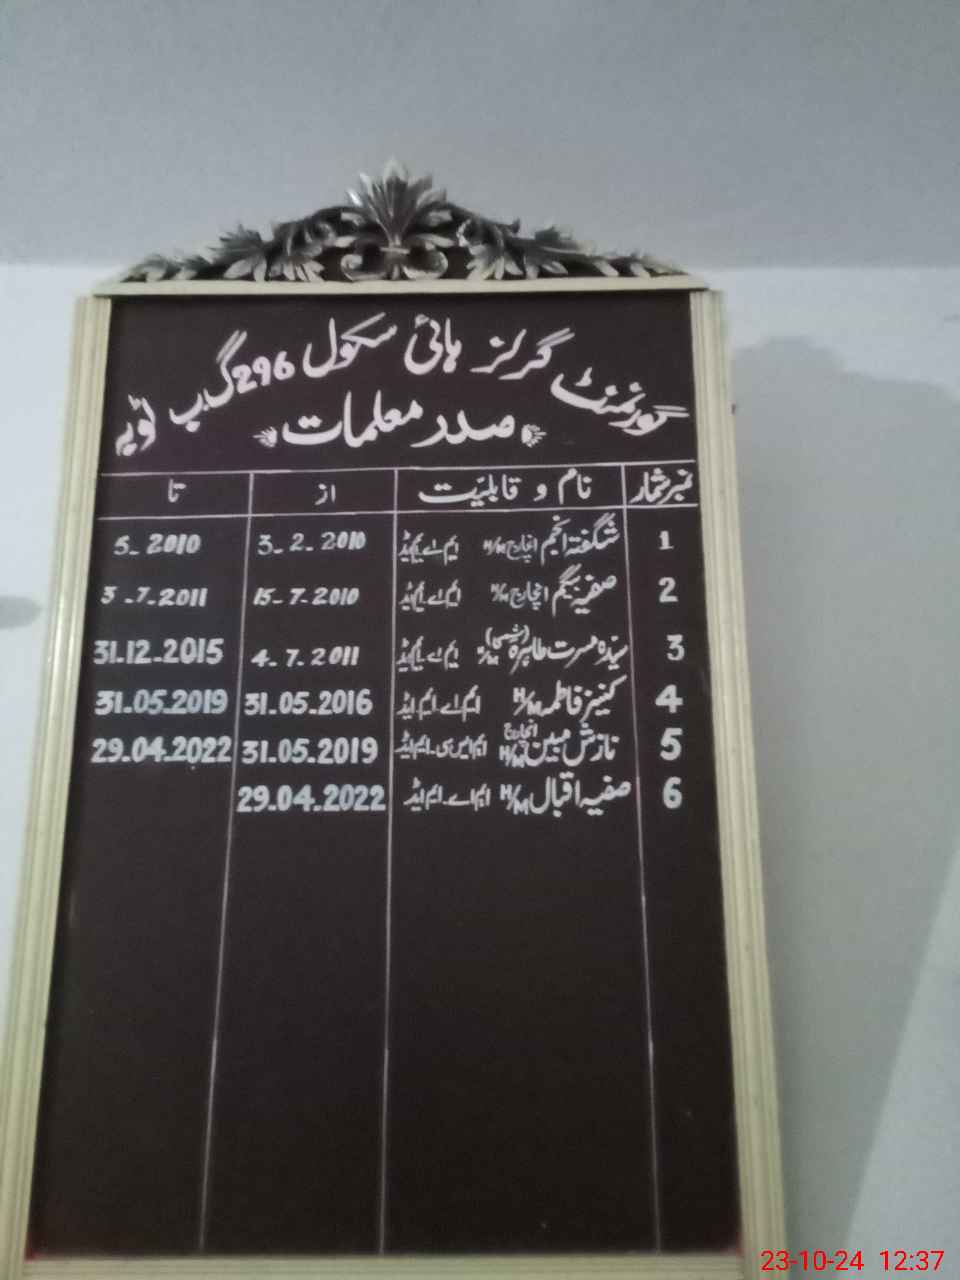 گورنمنٹ گرلز ہائی سکول 296 گ ب ٹوبہ
صدر معلمات
نمبر شمار نام و قابلیّت از تا
1 شگفتہ انجم انچارج H/M ایم اے ایم ایڈ 3-2-2010 5-2010
2 صفیہ بیگم انچارج H/M ایم اے ایم ایڈ 15-7-2010 3-7-2011
3 سیّدہ مسرت طاہرہ H/M ایم اے ایم ایڈ 4.7.2011 31.12.2015
4 کنیز فاطمہ H/M ایم اے۔ ایم ایڈ 31.05.2016 31.05.2019
5 نازش مبین انچارج H/M ایم ایس سی۔ ایم ایڈ 31.05.2019 29.04.2022
6 صفیہ اقبال H/M ایم اے۔ ایم ایڈ 29.04.2022
23-10-24 12:37